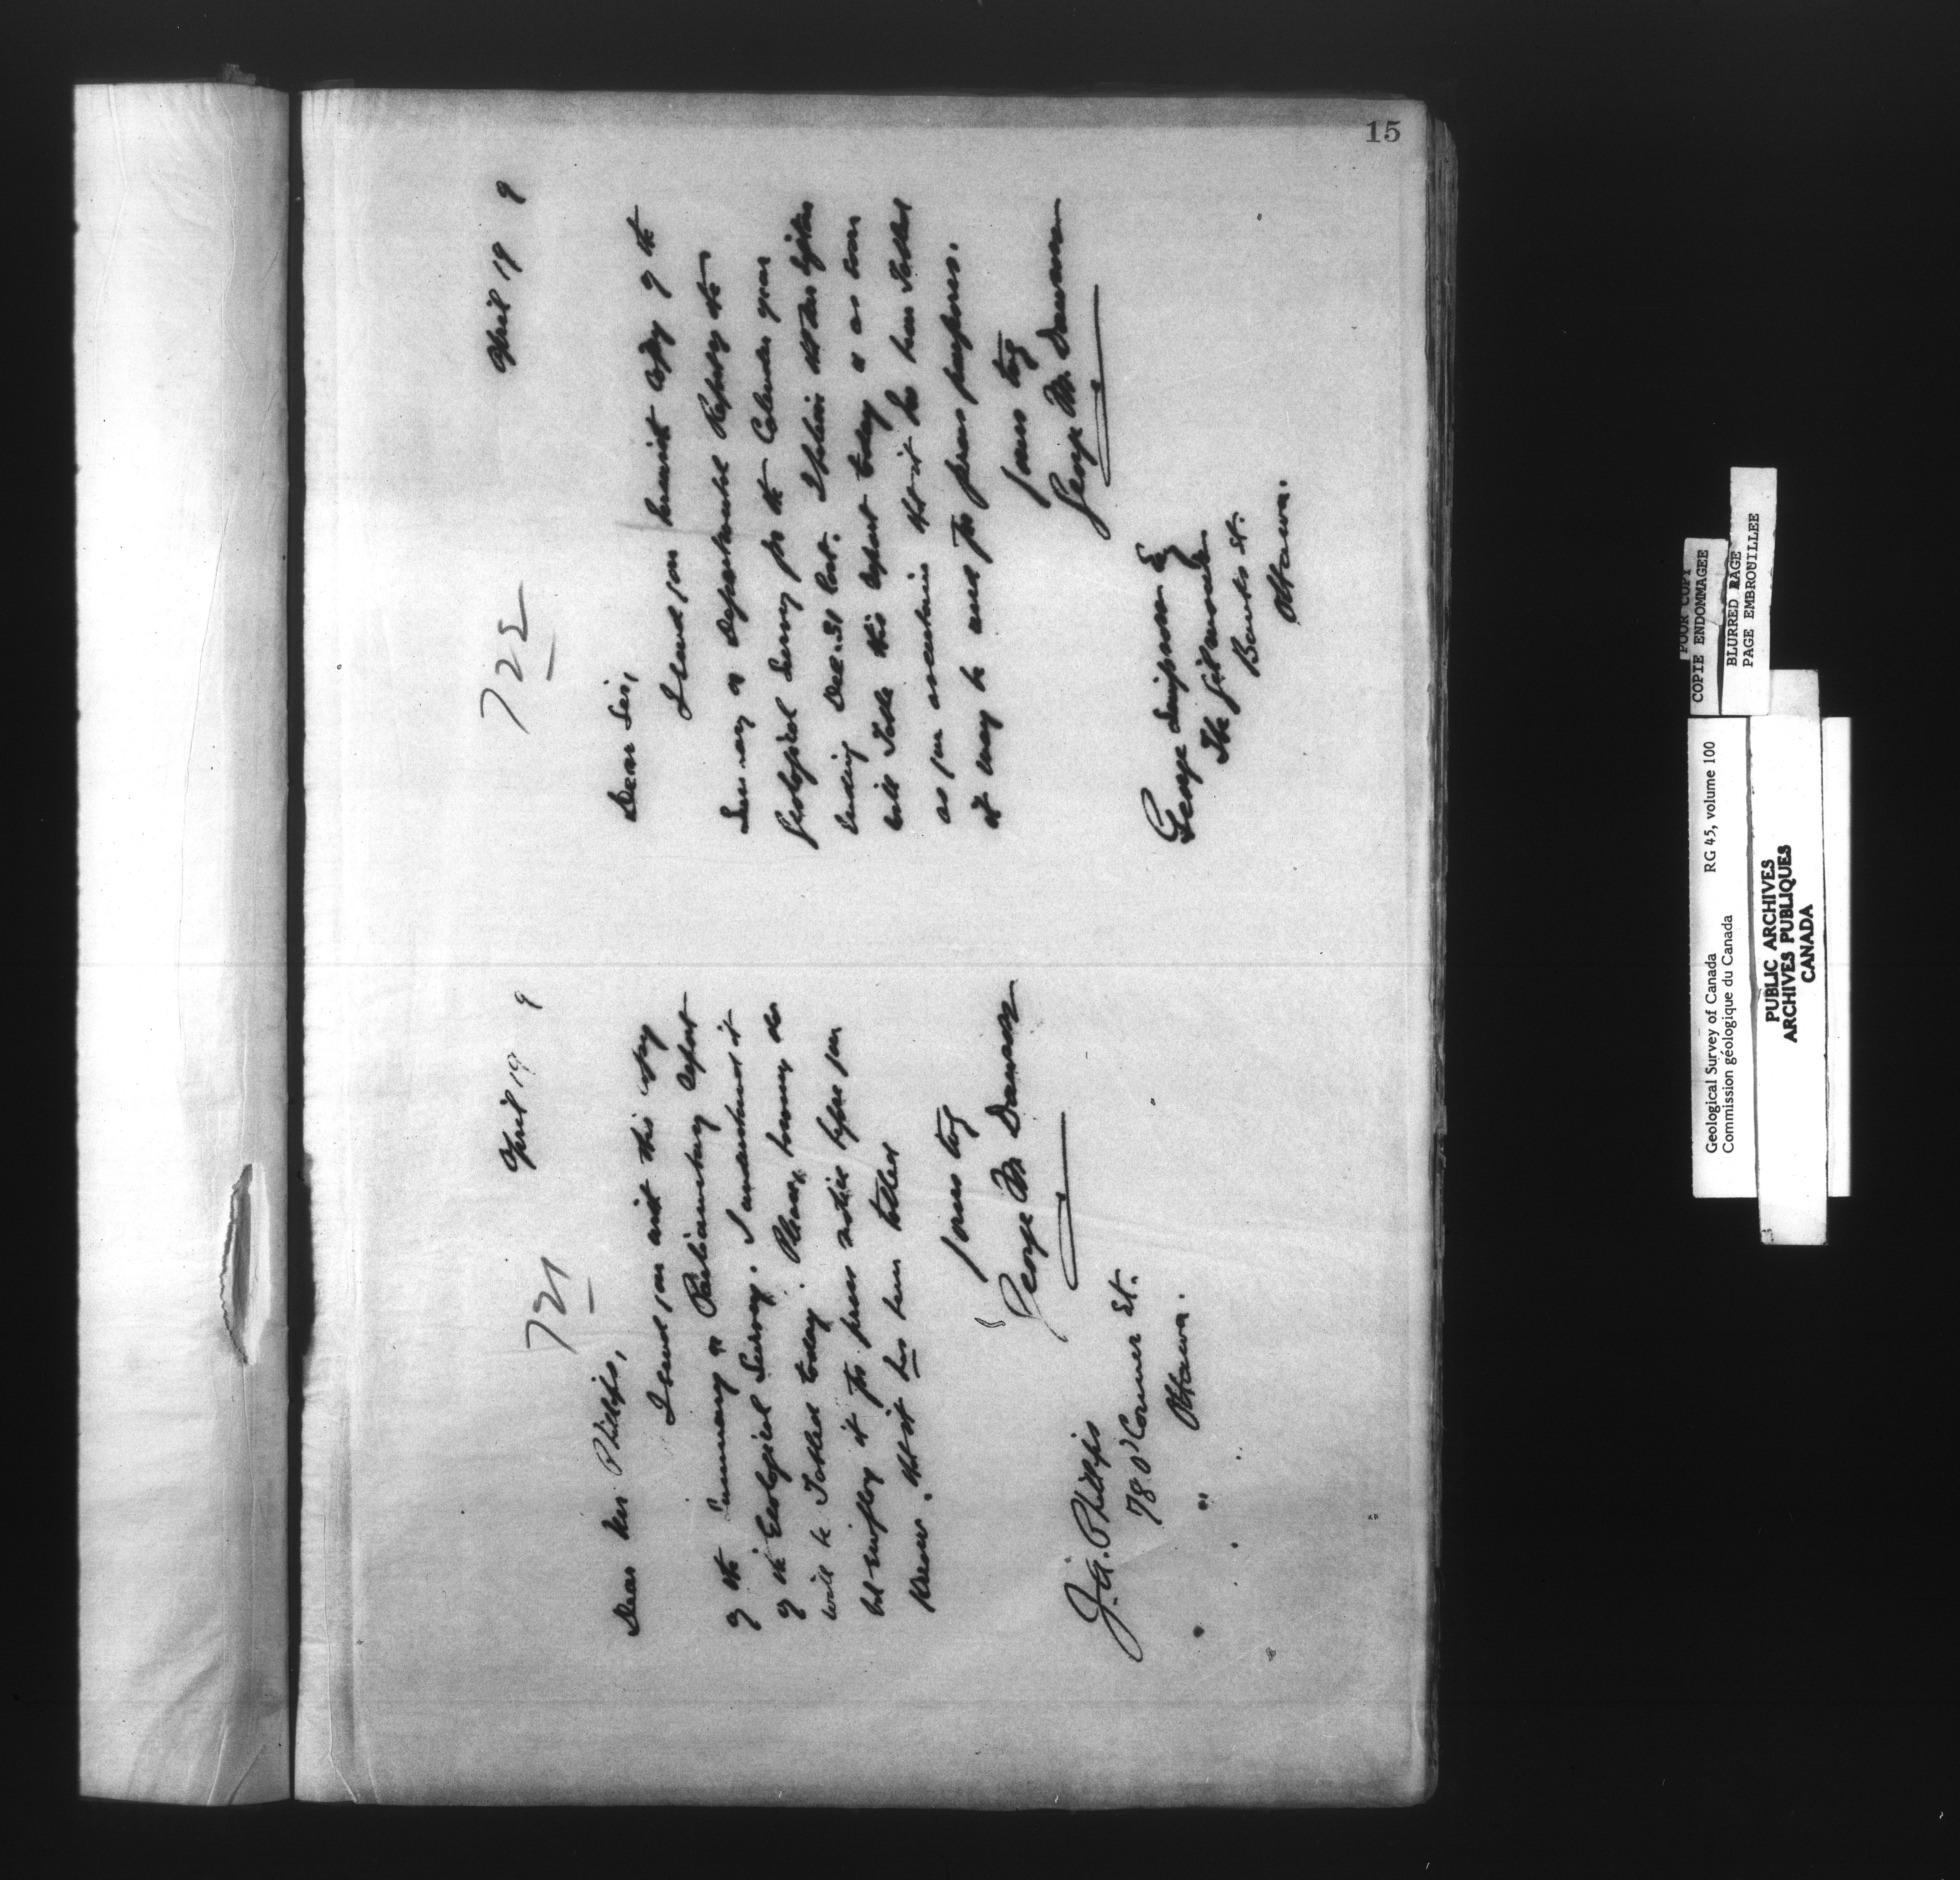 15
721
April 19 9
Dear Mr Phillips,
I send you with this copy
of the Summary or Parliamentary Report
of the Geological Survey. I understand it
will be Tabled today. Please, however do
not employ it for press notice before you
know that it has been tabled
yours truly
George M Dawson
J. G. Phillips
78 O'Connor St.
Ottawa.
722
April 19 9
Dear Sir,
I send you herewith copy of the
Summary or Departmental Report of the
Geological Survey for the Calendar year
ending Dec. 31 last. I believe the Minister
will Table this report today & as soon
as you ascertain that it has been Tabled
it may be used for press purposes.
yours truly
George M. Dawson
George Simpson Esq
The Gilmour
Bank St.
Ottawa.
POOR COPY
COPIE ENDOMMAGEE
BLURRED PAGE
PAGE EMBROUILLEE
Geological Survey of Canada RG 45, volume 100
Commission géologique du Canada
PUBLIC ARCHIVES
ARCHIVES PUBLIQUES
CANADA